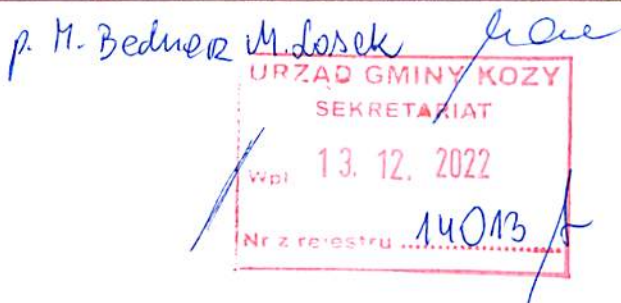 p. M. Bednarz M. Łosek
URZĄD GMINY KOZY
SEKRETARIAT
Wpł 13. 12. 2022
Nr z rejestru .......... 14013